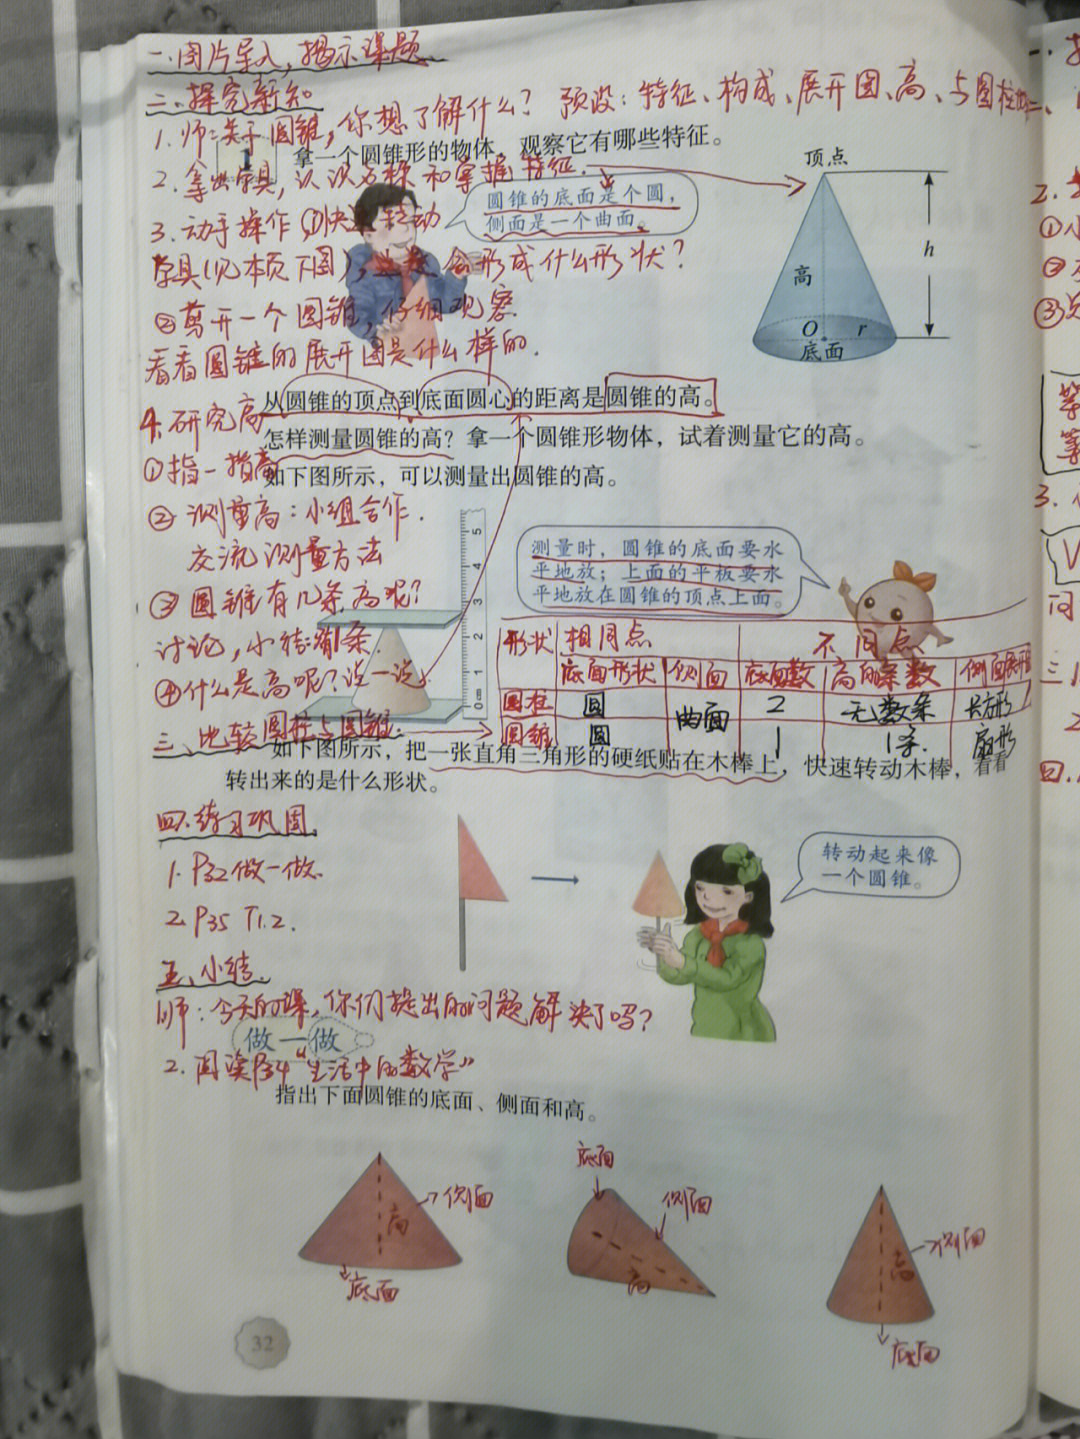 一.图片导入,揭示课题
二.探究新知
1.师:关于圆锥,你想了解什么? 预设:特征、构成、展开图、高、与圆柱
1
拿一个圆锥形的物体,观察它有哪些特征。
2.拿出学具,认识名称和掌握特征.
圆锥的底面是个圆,
侧面是一个曲面。
顶点
h
高
O r
底面
3.动手操作①快速转动
学具(见本页下图),会形成什么形状?
②剪开一个圆锥,仔细观察
看看圆锥的展开图是什么样的.
从圆锥的顶点到底面圆心的距离是圆锥的高。
4.研究高
怎样测量圆锥的高?拿一个圆锥形物体,试着测量它的高。
①指一指高
如下图所示,可以测量出圆锥的高。
②测量高:小组合作.
交流测量方法
③圆锥有几条高呢?
讨论,小结:1条.
④什么是高呢?说一说.
5
4
3
2
1
0cm
测量时,圆锥的底面要水
平地放;上面的平板要水
平地放在圆锥的顶点上面。
形状 相同点 不同点
底面形状 侧面 底面数 高的条数 侧面展开图
圆柱 圆 曲面 2 无数条 长方形
圆锥 圆 1 1条. 扇形
三、比较圆柱与圆锥.
如下图所示,把一张直角三角形的硬纸贴在木棒上,快速转动木棒,看看
转出来的是什么形状。
四.练习巩固
1.P32做一做.
2.P35 T1.2.
转动起来像
一个圆锥。
五、小结.
1师:今天的课,你们提出的问题解决了吗?
做一做
2.阅读P34“生活中的数学”
指出下面圆锥的底面、侧面和高。
侧面
高
底面
底面
侧面
高
侧面
高
底面
32